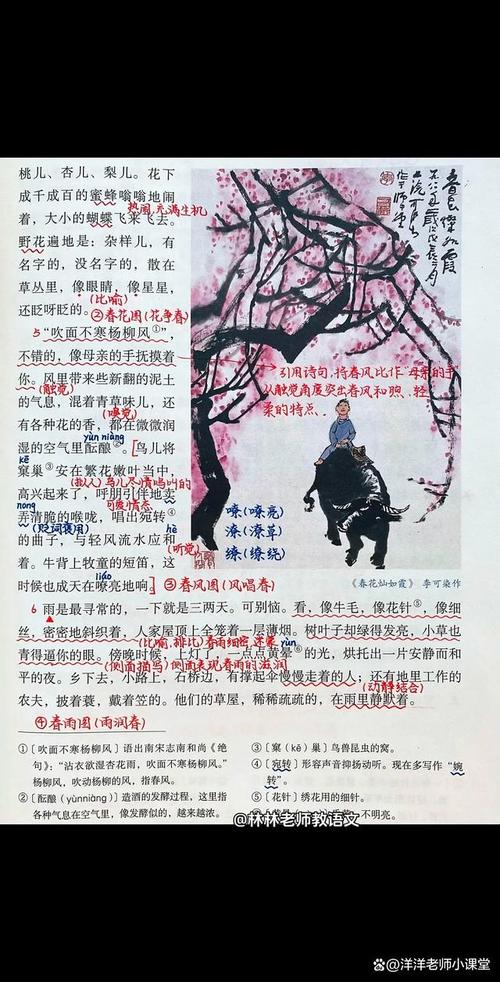 桃儿、杏儿、梨儿。花下
成千成百的蜜蜂嗡嗡地闹
热闹,充满生机
着，大小的蝴蝶飞来飞去。
野花遍地是：杂样儿，有
名字的，没名字的，散在
草丛里，像眼睛，像星星，
(比喻)
还眨呀眨的。
②春花图(花争春)
5 “吹面不寒杨柳风①”，
不错的，像母亲的手抚摸着
(触觉)
你。风里带来些新翻的泥土
的气息，混着青草味儿，还
(嗅觉)
有各种花的香，都在微微润
yùn niàng
湿的空气里酝酿②。[鸟儿将
kē
窠巢③安在繁花嫩叶当中，
(拟人)鸟儿尽情鸣叫的
高兴起来了，呼朋引伴地卖
可爱情态
nong
弄清脆的喉咙，唱出宛转④
(贬词褒用)
hè
的曲子，与轻风流水应和
(听觉)
着。牛背上牧童的短笛，这
liáo
时候也成天在嘹亮地响。]
③春风图(风唱春)
引用诗句，将春风比作母亲的手
从触觉角度突出春风和煦、轻
柔的特点、
嘹(嘹亮)
潦(潦草)
缭(缭绕)
《春花灿如霞》 李可染作
6 雨是最寻常的，一下就是三两天。可别恼。看，像牛毛，像花针⑤，像细
丝，密密地斜织着，人家屋顶上全笼着一层薄烟。树叶子却绿得发亮，小草也
(比喻,排比)春雨细密、迷蒙
yùn
青得逼你的眼。傍晚时候，上灯了，一点点黄晕⑥的光，烘托出一片安静而和
(侧面描写)侧面表现春雨的滋润
平的夜。乡下去，小路上，石桥边，有撑起伞慢慢走着的人；还有地里工作的
(动静结合)
农夫，披着蓑，戴着笠的。他们的草屋，稀稀疏疏的，在雨里静默着。
④春雨图(雨润春)
①〔吹面不寒杨柳风〕语出南宋志南和尚《绝
句》：“沾衣欲湿杏花雨，吹面不寒杨柳风。”
杨柳风，吹动杨柳的风，指春风。
②〔酝酿（yùnniàng）〕造酒的发酵过程，这里指
各种气息在空气里，像发酵似的，越来越浓。
③〔窠（kē）巢〕鸟兽昆虫的窝。
④〔宛转〕形容声音抑扬动听。现在多写作“婉
转”。
⑤〔花针〕绣花用的细针。
不明亮。
@林林老师教语文
@洋洋老师小课堂